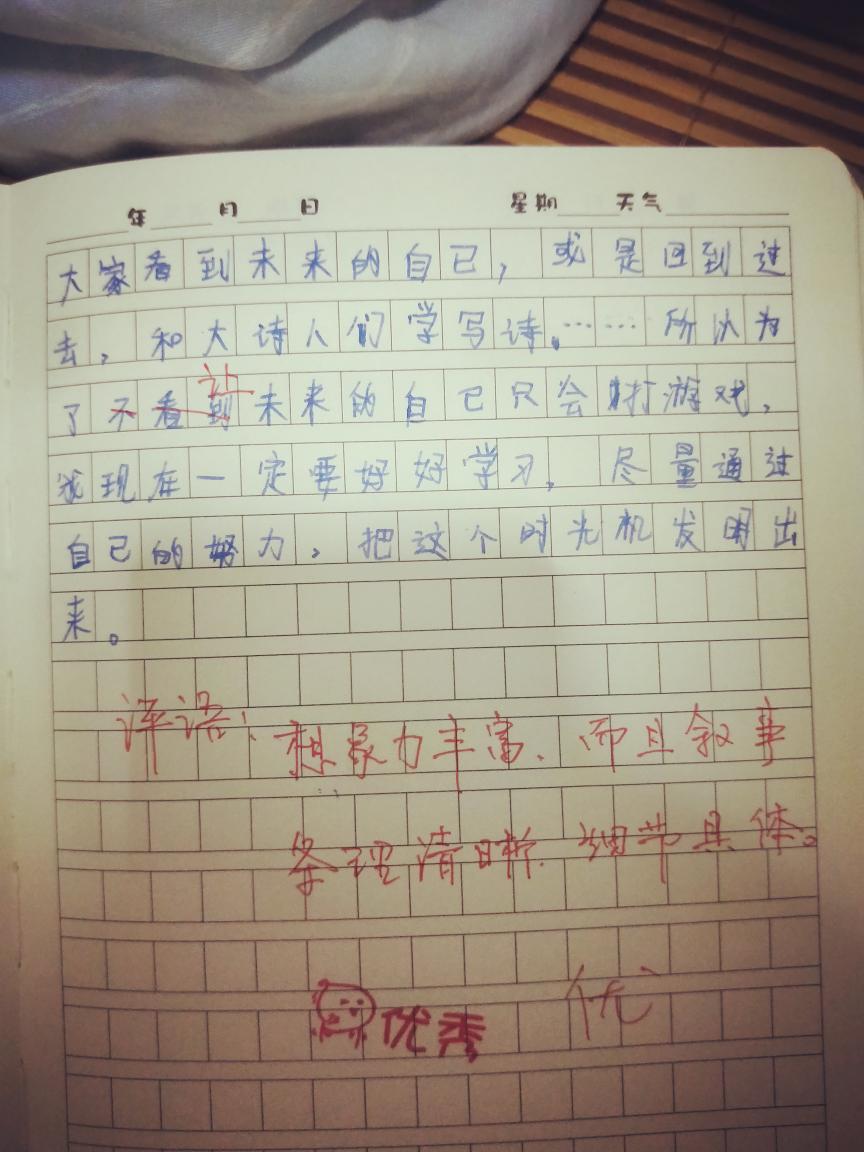 年 月 日 星期 天气
大家看到未来的自己，或是回到过
去，和大诗人们学写诗。…… 所以为
让
了不看到未来的自己只会打游戏，
我现在一定要好好学习， 尽量通过
自己的努力，把这个时光机发明出
来。
评语：想象力丰富，而且叙事
条理清晰，细节具体。
优秀 优